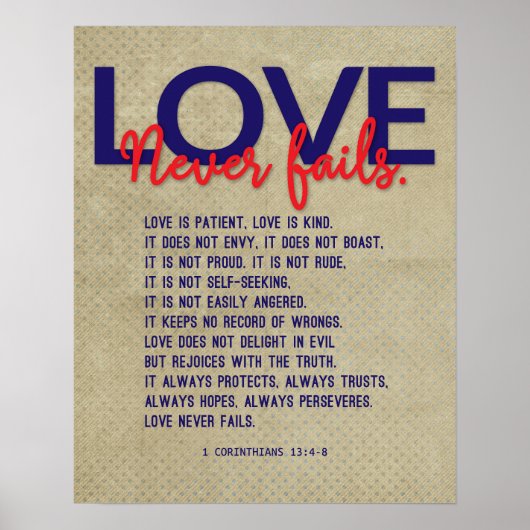 LOVE
Never fails.
LOVE IS PATIENT, LOVE IS KIND.
IT DOES NOT ENVY, IT DOES NOT BOAST,
IT IS NOT PROUD. IT IS NOT RUDE,
IT IS NOT SELF-SEEKING,
IT IS NOT EASILY ANGERED.
IT KEEPS NO RECORD OF WRONGS.
LOVE DOES NOT DELIGHT IN EVIL
BUT REJOICES WITH THE TRUTH.
IT ALWAYS PROTECTS, ALWAYS TRUSTS,
ALWAYS HOPES, ALWAYS PERSEVERES.
LOVE NEVER FAILS.
1 CORINTHIANS 13:4-8